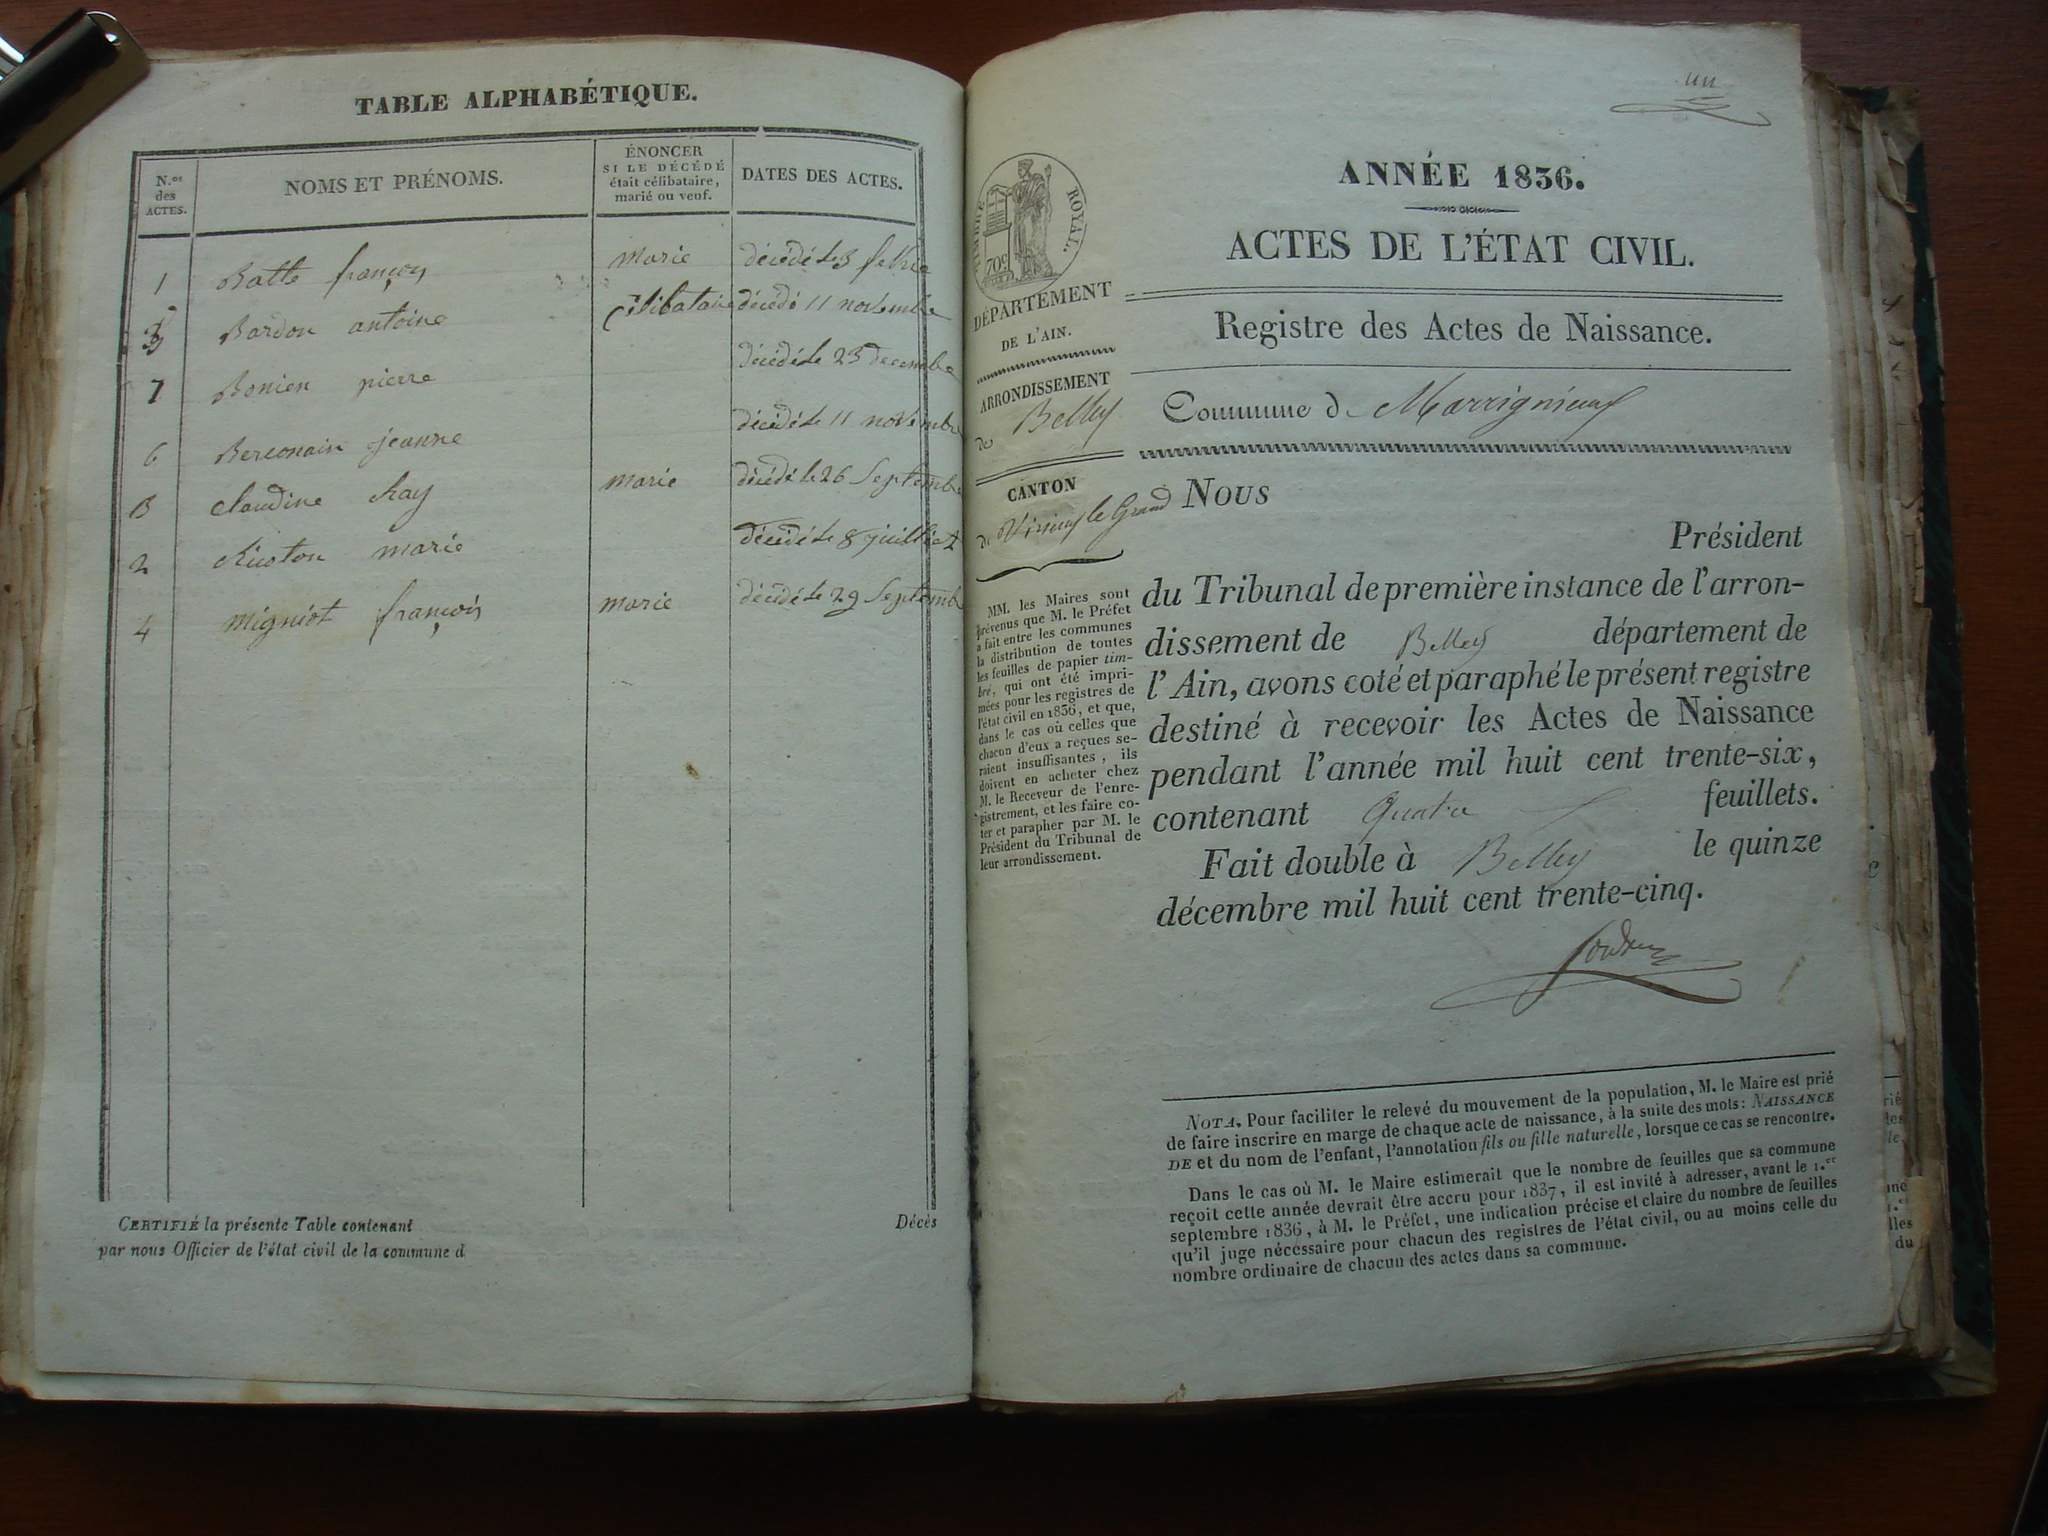 TABLE ALPHABÉTIQUE.
N.os des ACTES.
NOMS ET PRÉNOMS.
ÉNONCER SI LE DÉCÉDÉ était célibataire, marié ou veuf.
DATES DES ACTES.
1 Batte françois marie décédé le 3
Bardon antoine célibataire décédé 11 novembre
7 Bonien pierre décédé le 23 decembre
6 jeanne décédé le 11 novembre
3 claudine marie décédé le 26 Septembre
2 marie décédé le 8 juillet
4 Migniot françois marie décédé le 29 Septemb
CERTIFIÉ la présente Table contenant Décès
par nous Officier de l'état civil de la commune d
un
TIMBRE ROYAL.
70c
DÉPARTEMENT
DE L'AIN.
ARRONDISSEMENT
de Belley
CANTON
de Virieu le Grand
MM. les Maires sont
prévenus que M. le Préfet
a fait entre les communes
la distribution de toutes
les feuilles de papier tim-
bré, qui ont été impri-
mées pour les registres de
l'état civil en 1836, et que,
dans le cas où celles que
chacun d'eux a reçues se-
raient insuffisantes, ils
doivent en acheter chez
M. le Receveur de l'enre-
gistrement, et les faire co-
ter et parapher par M. le
Président du Tribunal de
leur arrondissement.
ANNÉE 1836.
ACTES DE L'ÉTAT CIVIL.
Registre des Actes de Naissance.
Commune de Marignieux
NOUS
Président
du Tribunal de première instance de l'arron-
dissement de Belley département de
l'Ain, avons coté et paraphé le présent registre
destiné à recevoir les Actes de Naissance
pendant l'année mil huit cent trente-six,
contenant Quatre feuillets.
Fait double à Belley le quinze
décembre mil huit cent trente-cinq.
NOTA. Pour faciliter le relevé du mouvement de la population, M. le Maire est prié
de faire inscrire en marge de chaque acte de naissance, à la suite des mots: NAISSANCE
DE et du nom de l'enfant, l'annotation fils ou fille naturelle, lorsque ce cas se rencontre.
Dans le cas où M. le Maire estimerait que le nombre de feuilles que sa commune
reçoit cette année devrait être accru pour 1837, il est invité à adresser, avant le 1.er
septembre 1836, à M. le Préfet, une indication précise et claire du nombre de feuilles
qu'il juge nécessaire pour chacun des registres de l'état civil, ou au moins celle du
nombre ordinaire de chacun des actes dans sa commune.